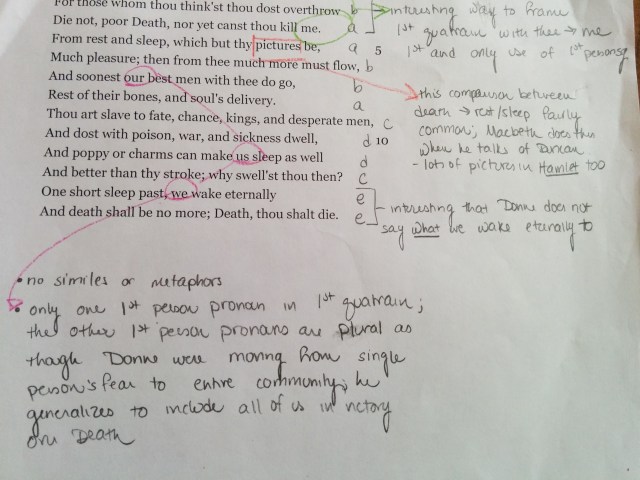 For those whom thou think'st thou dost overthrow b interesting way to frame
Die not, poor Death, nor yet canst thou kill me. a 1st quatrain with thee → me
From rest and sleep, which but thy pictures be, a 5 1st and only use of 1st person sg
Much pleasure; then from thee much more must flow, b
And soonest our best men with thee do go, b this comparison between
Rest of their bones, and soul's delivery. a death → rest/sleep fairly
Thou art slave to fate, chance, kings, and desperate men, c common; Macbeth does this
And dost with poison, war, and sickness dwell, d 10 when he talks of Duncan
And poppy or charms can make us sleep as well d - lots of pictures in Hamlet too
And better than thy stroke; why swell'st thou then? c
One short sleep past, we wake eternally e - interesting that Donne does not
And death shall be no more; Death, thou shalt die. e say what we wake eternally to
• no similes or metaphors
• only one 1st person pronoun in 1st quatrain;
the other 1st person pronouns are plural as
though Donne were moving from single
person's fear to entire community; he
generalizes to include all of us in victory
over Death